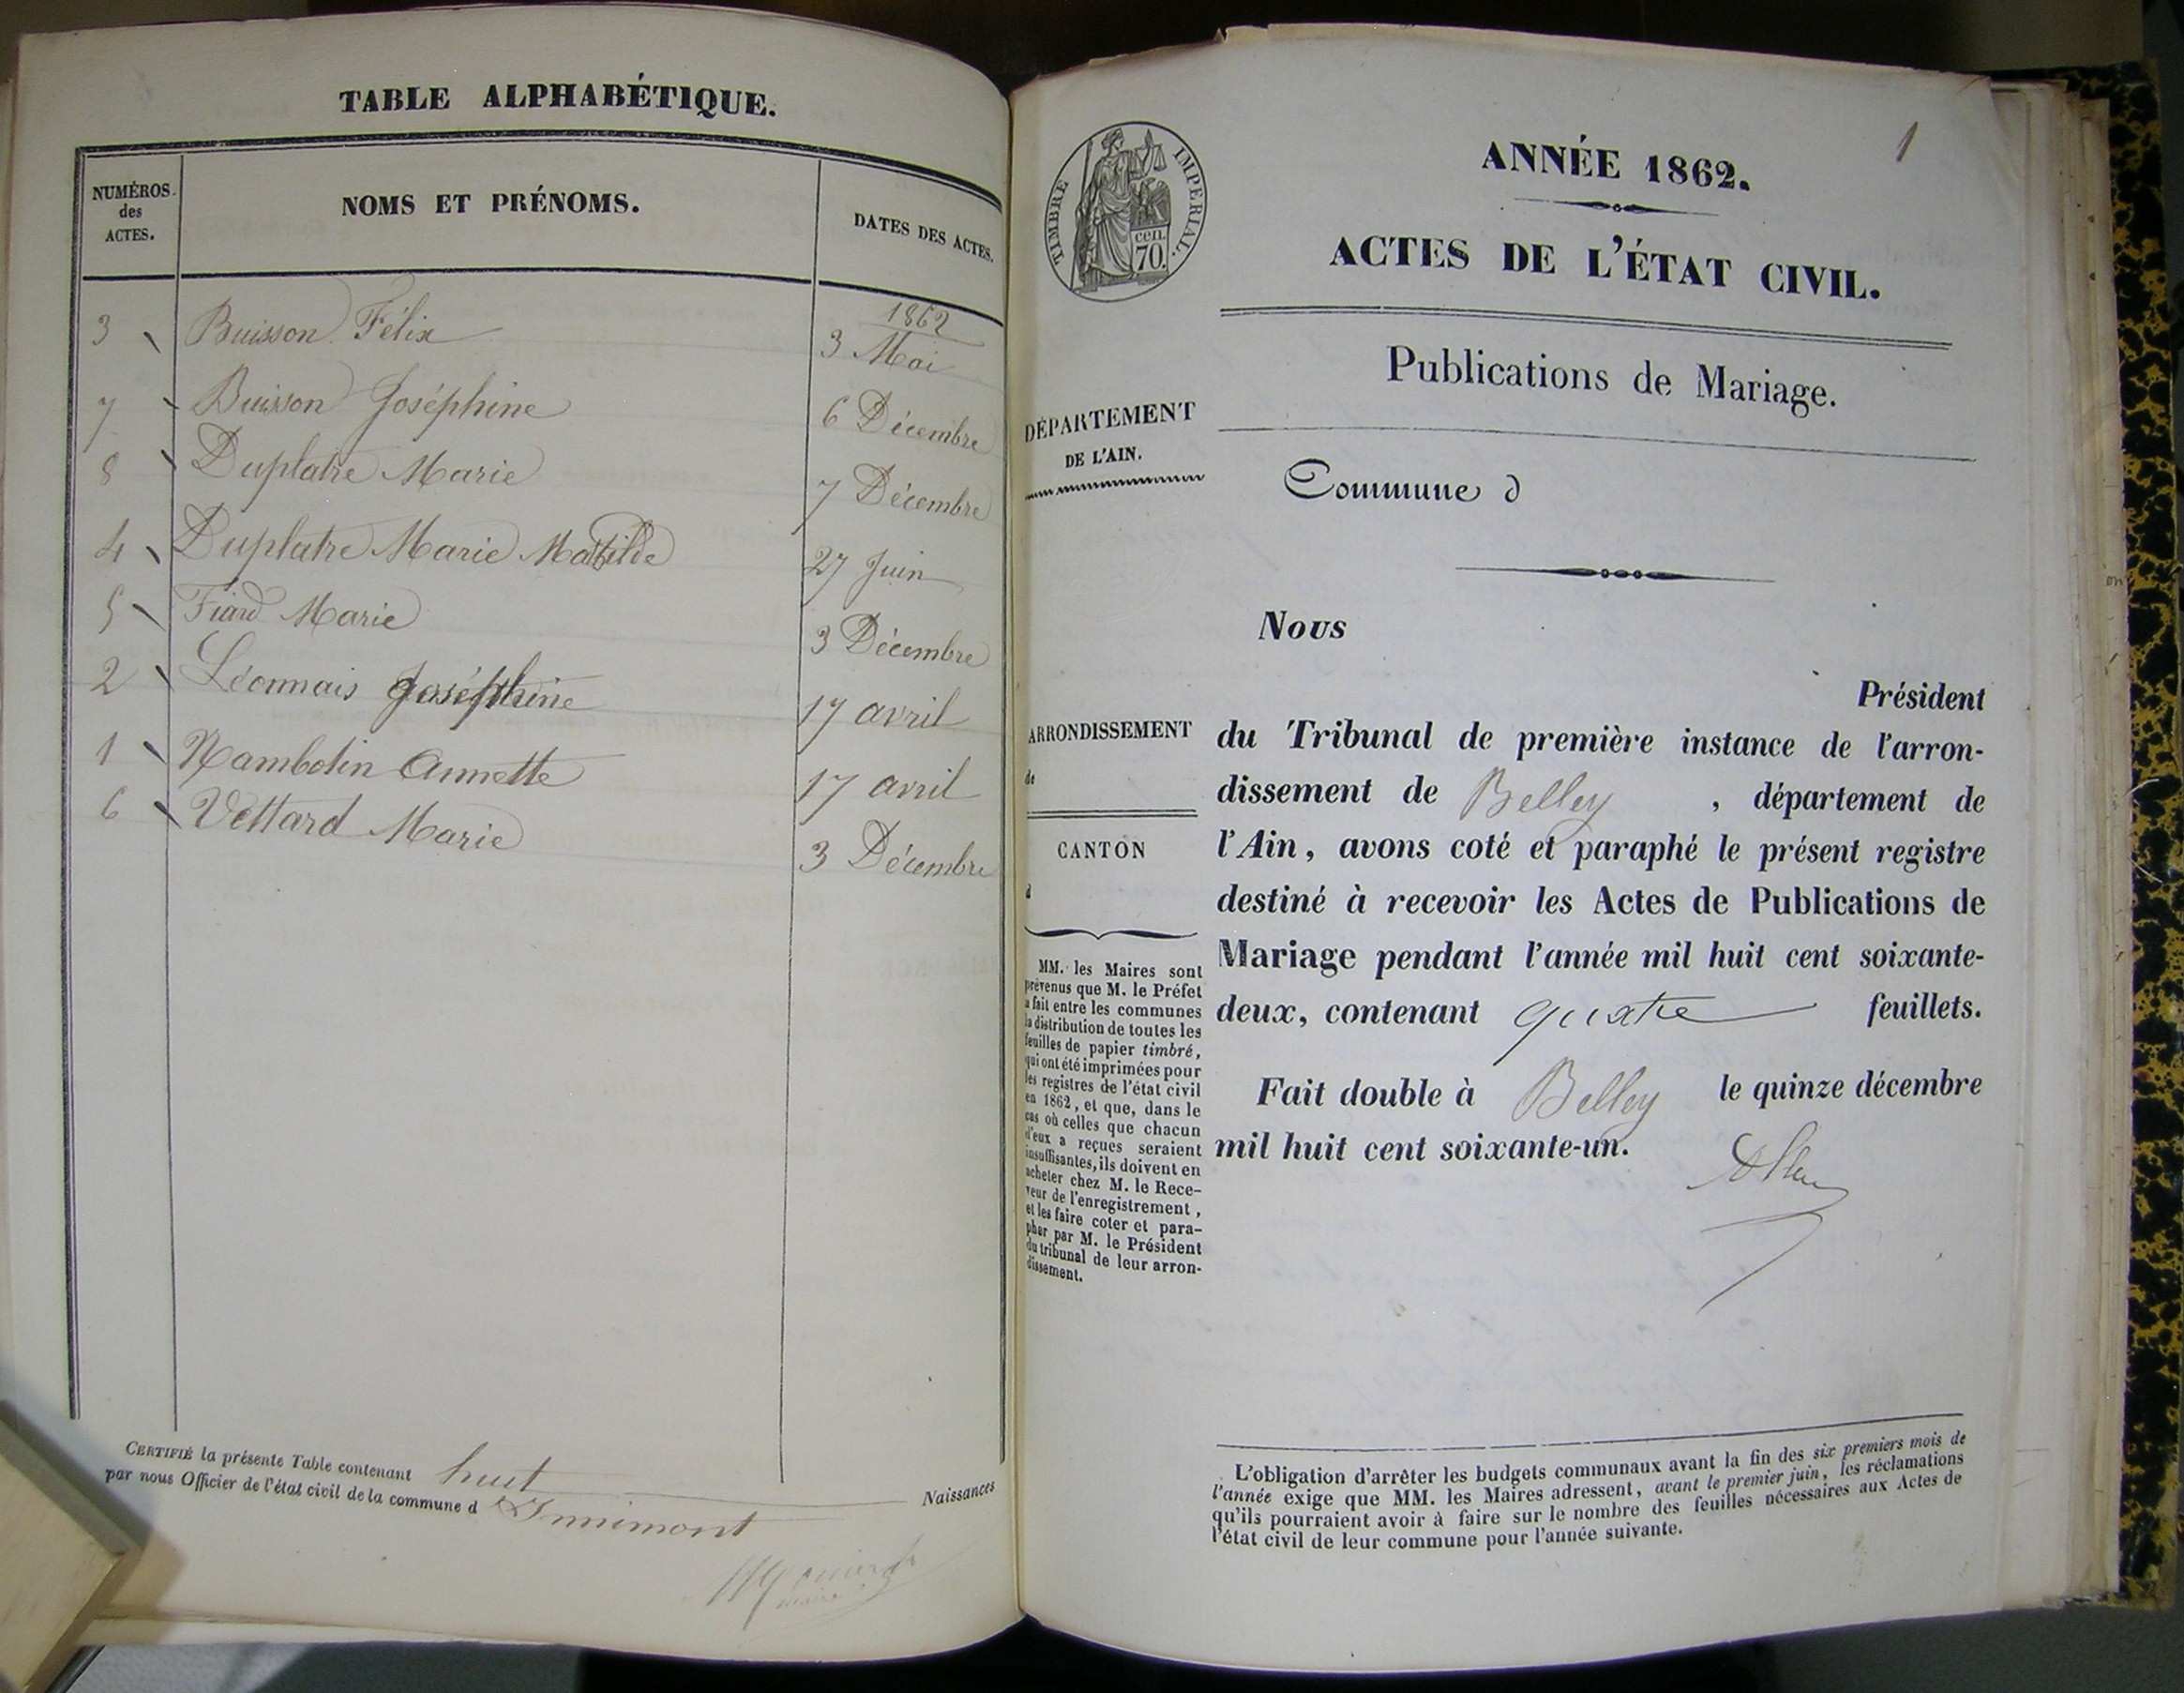 TABLE ALPHABÉTIQUE.
NUMÉROS des ACTES.
NOMS ET PRÉNOMS.
DATES DES ACTES.
1862
3 Buisson Félix 3 Mai
7 Buisson Joséphine 6 Décembre
8 Duplatre Marie 7 Décembre
4 Duplatre Marie Matilde 27 Juin
5 Fiard Marie 3 Décembre
2 Léonnais Joséphine 17 avril
1 Nambotin Annette 17 avril
6 Vettard Marie 3 Décembre
CERTIFIÉ la présente Table contenant huit Naissances
par nous Officier de l'état civil de la commune d'Innimont
1
TIMBRE IMPÉRIAL.
cen.
70.
ANNÉE 1862.
ACTES DE L'ÉTAT CIVIL.
Publications de Mariage.
DÉPARTEMENT
DE L'AIN.
Commune d
Nous
Président
ARRONDISSEMENT
de
CANTON
d
du Tribunal de première instance de l'arron-
dissement de Belley, département de
l'Ain, avons coté et paraphé le présent registre
destiné à recevoir les Actes de Publications de
Mariage pendant l'année mil huit cent soixante-
deux, contenant quatre feuillets.
Fait double à Belley le quinze décembre
mil huit cent soixante-un.
MM. les Maires sont
prévenus que M. le Préfet
a fait entre les communes
la distribution de toutes les
feuilles de papier timbré,
qui ont été imprimées pour
les registres de l'état civil
en 1862, et que, dans le
cas où celles que chacun
d'eux a reçues seraient
insuffisantes, ils doivent en
acheter chez M. le Rece-
veur de l'enregistrement,
et les faire coter et para-
pher par M. le Président
du tribunal de leur arron-
dissement.
L'obligation d'arrêter les budgets communaux avant la fin des six premiers mois de
l'année exige que MM. les Maires adressent, avant le premier juin, les réclamations
qu'ils pourraient avoir à faire sur le nombre des feuilles nécessaires aux Actes de
l'état civil de leur commune pour l'année suivante.